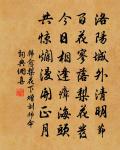 洛陽城外清明節
百花寥落梨花發
今日相逢瘴海頭
共驚爛漫開正月
韓愈梨花下贈劉師命
詞典網喜